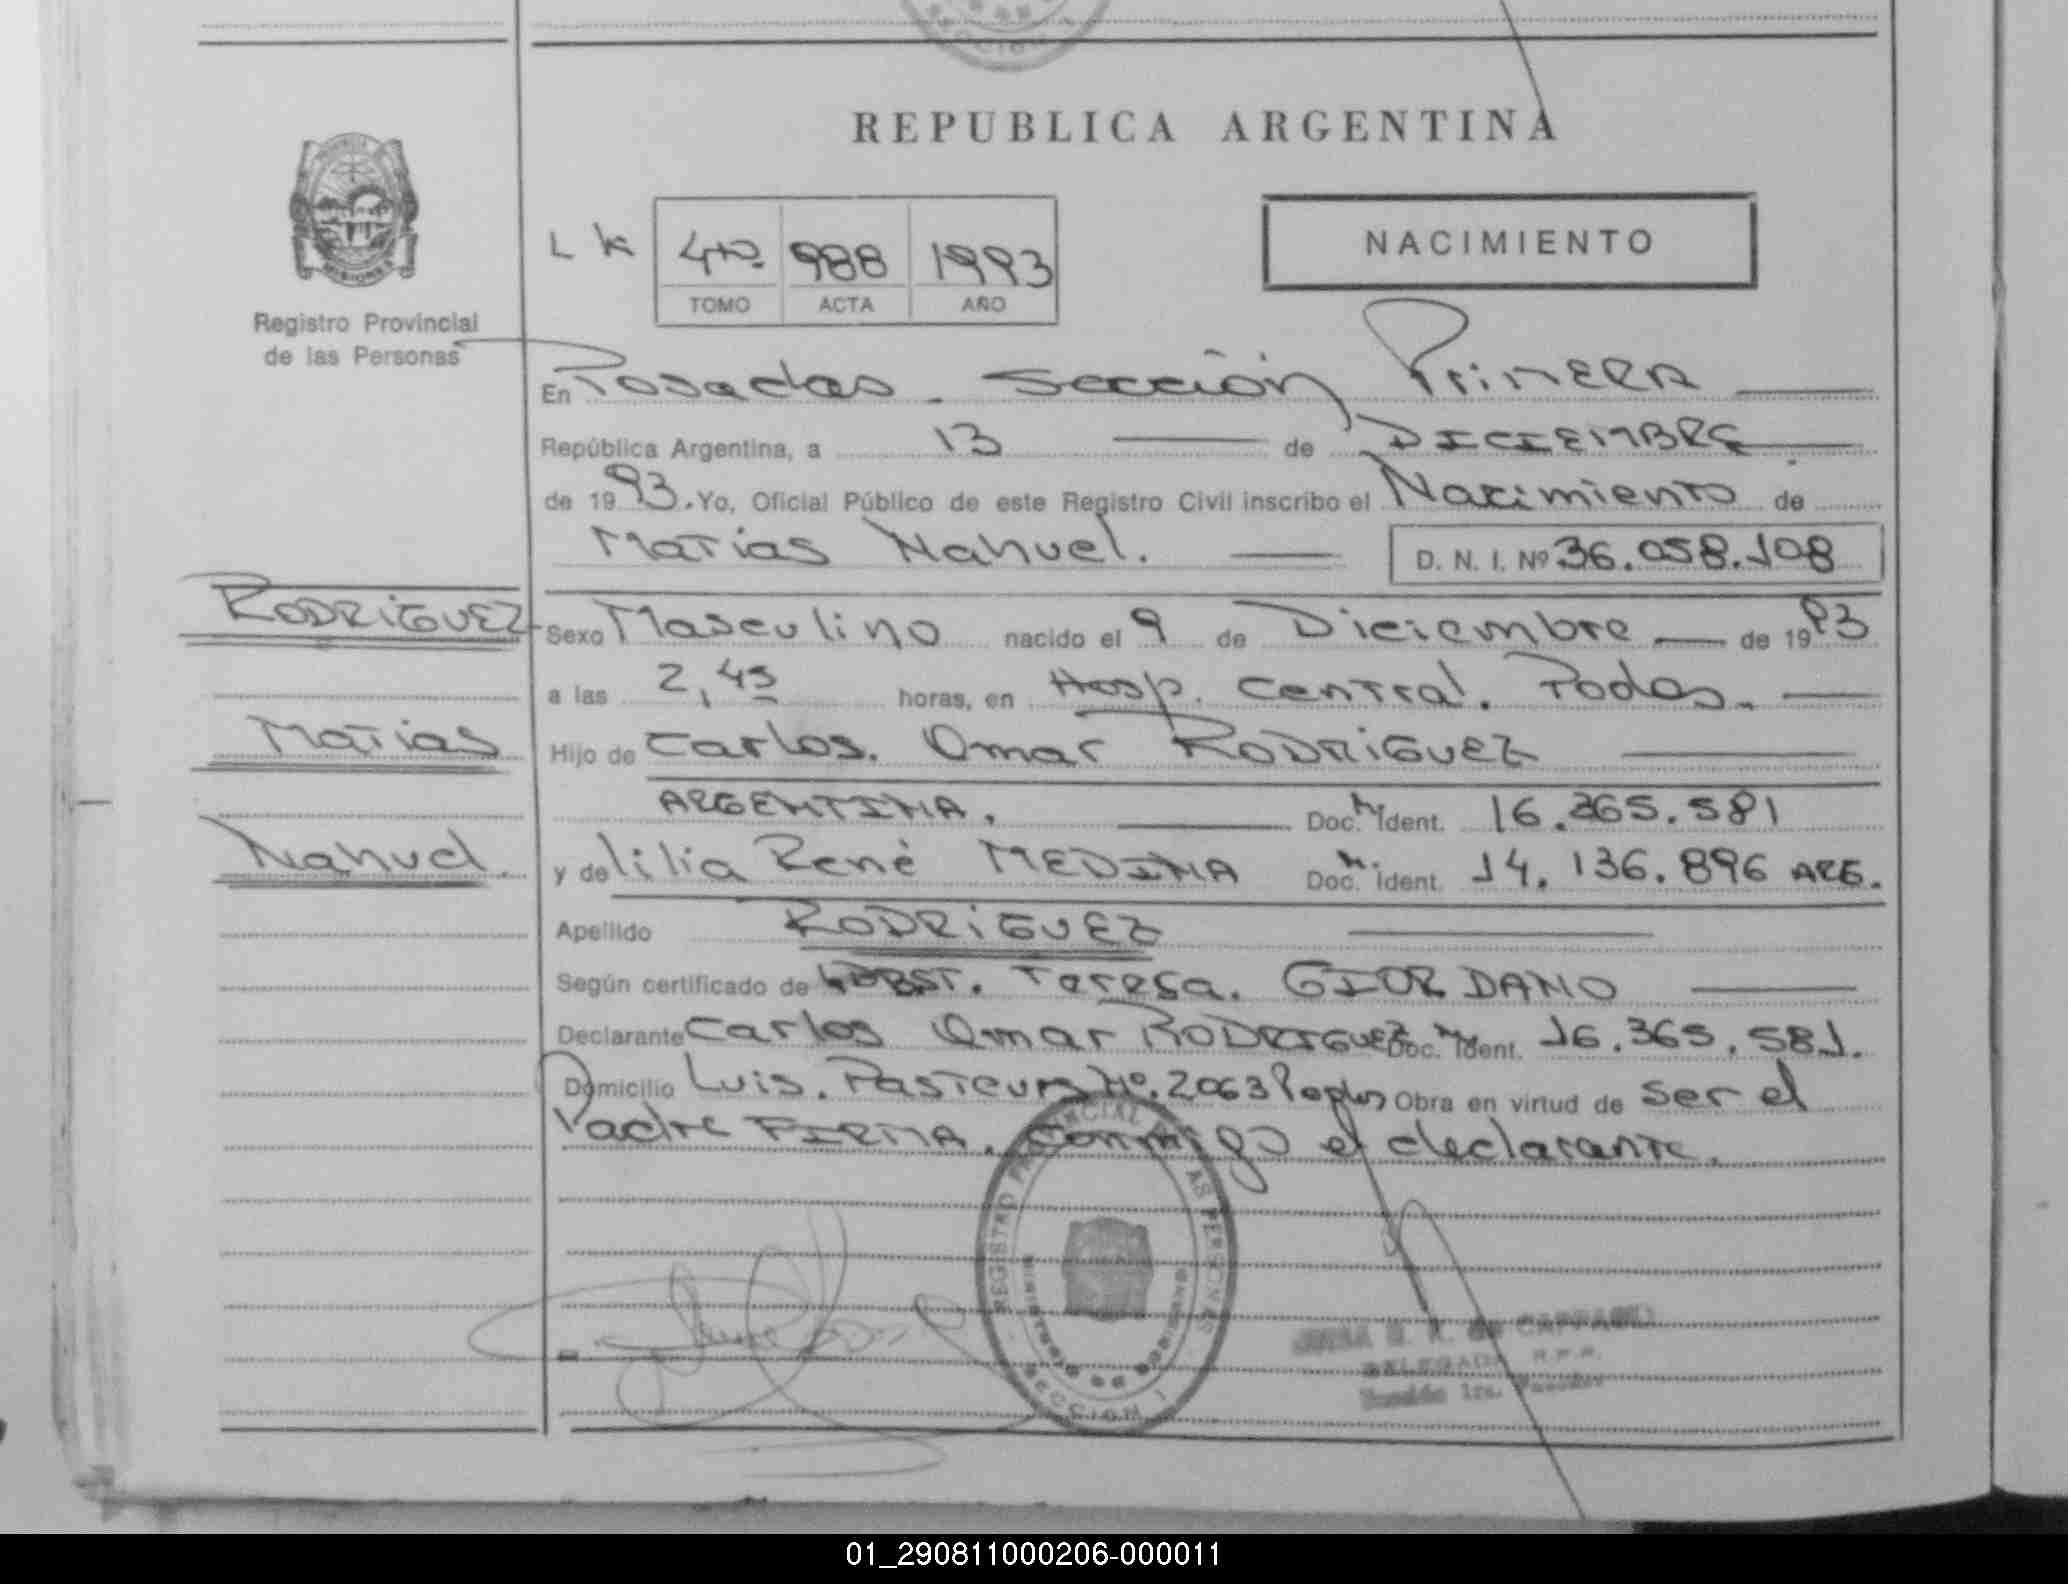 REPUBLICA ARGENTINA
MISIONES
Registro Provincial
de las Personas
L K
4to. 988 1993
TOMO ACTA AÑO
NACIMIENTO
En Posadas. Sección Primera
República Argentina, a 13 de DICIEMBRE
de 1993. Yo, Oficial Público de este Registro Civil inscribo el Nacimiento de
Matias Nahuel.
D. N. I. Nº 36.058.108
RODRIGUEZ
Matias
Nahuel.
Sexo Masculino nacido el 9 de Diciembre de 1993
a las 2,45 horas, en Hosp. Central. Podas.
Hijo de Carlos. Omar RODRIGUEZ
ARGENTINA. Doc. Ident. 16.365.581
y de Lilia René MEDINA Doc. Ident. 14.136.896 ARG.
Apellido RODRIGUEZ
Según certificado de OBST. Teresa. GIORDANO
Declarante Carlos Omar RODRIGUEZ Doc. Ident. 16.365.581.
Domicilio Luis. Pasteur Nº.2063 Obra en virtud de ser el
Padre FIRMA. conmigo el declarante.
REGISTRO PROVINCIAL DE LAS PERSONAS
MINISTERIO DE GOBIERNO
SECCION 1
DELEGADA R.P.P.
Sección 1ra. Posadas
01_290811000206-000011